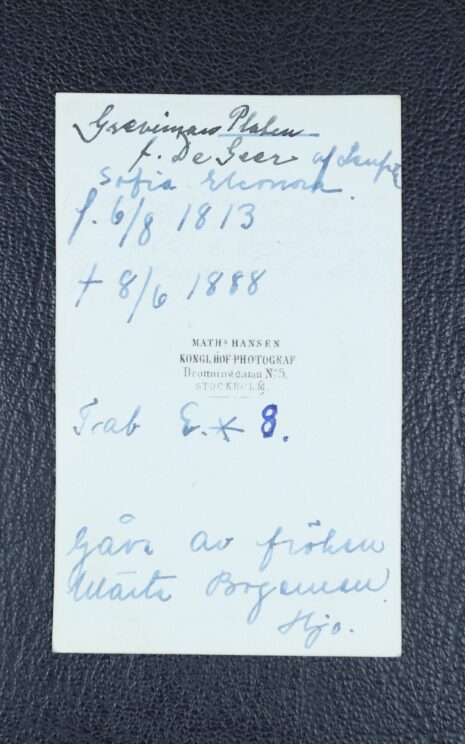 Grevinnan Platen
f. De Geer af Leufsta
Sofia Eleonora.
f. 6/8 1813
† 8/6 1888
MATHS HANSEN
KONGL. HOF-PHOTOGRAF
Drottninggatan No 5.
STOCKHOLM.
Tab 8.
Gåva av fröken
Märta Bogeman
Hjo.